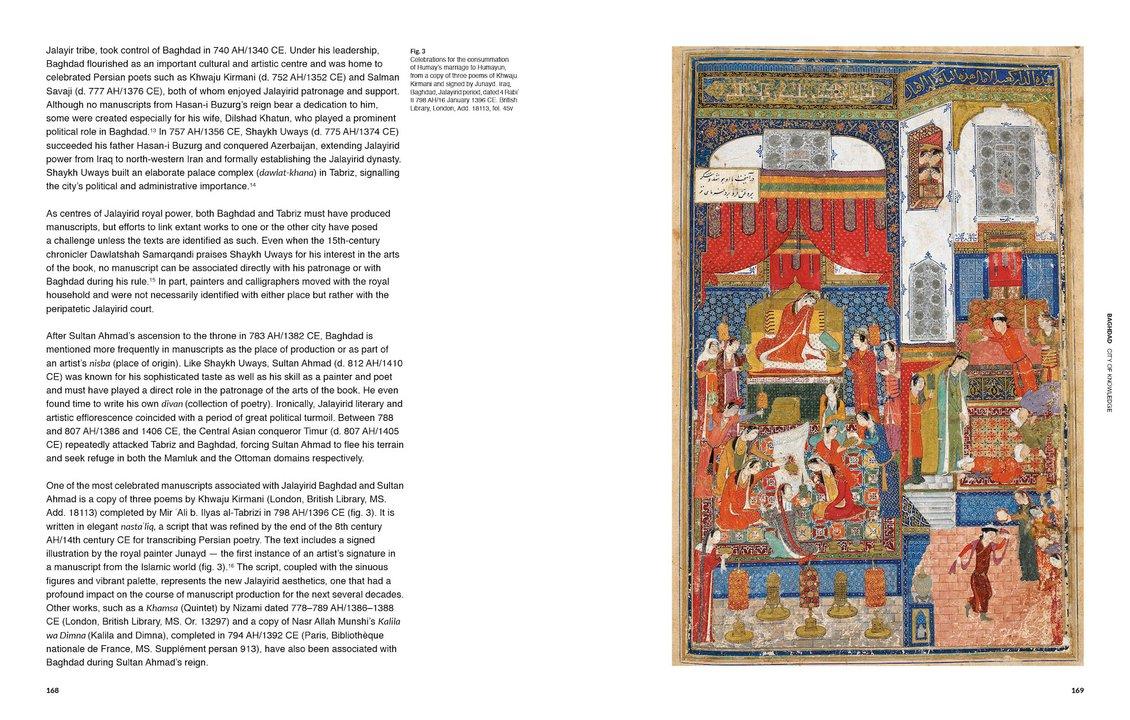 Jalayir tribe, took control of Baghdad in 740 AH/1340 CE. Under his leadership,
Baghdad flourished as an important cultural and artistic centre and was home to
celebrated Persian poets such as Khwaju Kirmani (d. 752 AH/1352 CE) and Salman
Savaji (d. 777 AH/1376 CE), both of whom enjoyed Jalayirid patronage and support.
Although no manuscripts from Hasan-i Buzurg's reign bear a dedication to him,
some were created especially for his wife, Dilshad Khatun, who played a prominent
political role in Baghdad.¹³ In 757 AH/1356 CE, Shaykh Uways (d. 775 AH/1374 CE)
succeeded his father Hasan-i Buzurg and conquered Azerbaijan, extending Jalayirid
power from Iraq to north-western Iran and formally establishing the Jalayirid dynasty.
Shaykh Uways built an elaborate palace complex (dawlat-khana) in Tabriz, signalling
the city's political and administrative importance.¹⁴
As centres of Jalayirid royal power, both Baghdad and Tabriz must have produced
manuscripts, but efforts to link extant works to one or the other city have posed
a challenge unless the texts are identified as such. Even when the 15th-century
chronicler Dawlatshah Samarqandi praises Shaykh Uways for his interest in the arts
of the book, no manuscript can be associated directly with his patronage or with
Baghdad during his rule.¹⁵ In part, painters and calligraphers moved with the royal
household and were not necessarily identified with either place but rather with the
peripatetic Jalayirid court.
After Sultan Ahmad's ascension to the throne in 783 AH/1382 CE, Baghdad is
mentioned more frequently in manuscripts as the place of production or as part of
an artist's nisba (place of origin). Like Shaykh Uways, Sultan Ahmad (d. 812 AH/1410
CE) was known for his sophisticated taste as well as his skill as a painter and poet
and must have played a direct role in the patronage of the arts of the book. He even
found time to write his own divan (collection of poetry). Ironically, Jalayirid literary and
artistic efflorescence coincided with a period of great political turmoil. Between 788
and 807 AH/1386 and 1406 CE, the Central Asian conqueror Timur (d. 807 AH/1405
CE) repeatedly attacked Tabriz and Baghdad, forcing Sultan Ahmad to flee his terrain
and seek refuge in both the Mamluk and the Ottoman domains respectively.
One of the most celebrated manuscripts associated with Jalayirid Baghdad and Sultan
Ahmad is a copy of three poems by Khwaju Kirmani (London, British Library, MS.
Add. 18113) completed by Mir ʿAli b. Ilyas al-Tabrizi in 798 AH/1396 CE (fig. 3). It is
written in elegant nastaʿliq, a script that was refined by the end of the 8th century
AH/14th century CE for transcribing Persian poetry. The text includes a signed
illustration by the royal painter Junayd — the first instance of an artist's signature in
a manuscript from the Islamic world (fig. 3).¹⁶ The script, coupled with the sinuous
figures and vibrant palette, represents the new Jalayirid aesthetics, one that had a
profound impact on the course of manuscript production for the next several decades.
Other works, such as a Khamsa (Quintet) by Nizami dated 778–789 AH/1386–1388
CE (London, British Library, MS. Or. 13297) and a copy of Nasr Allah Munshi's Kalila
wa Dimna (Kalila and Dimna), completed in 794 AH/1392 CE (Paris, Bibliothèque
nationale de France, MS. Supplément persan 913), have also been associated with
Baghdad during Sultan Ahmad's reign.
168
Fig. 3
Celebrations for the consummation
of Humay's marriage to Humayun,
from a copy of three poems of Khwaju
Kirmani and signed by Junayd. Iraq,
Baghdad, Jalayirid period, dated 4 Rabiʿ
II 798 AH/16 January 1396 CE. British
Library, London, Add. 18113, fol. 45v
BAGHDAD CITY OF KNOWLEDGE
169